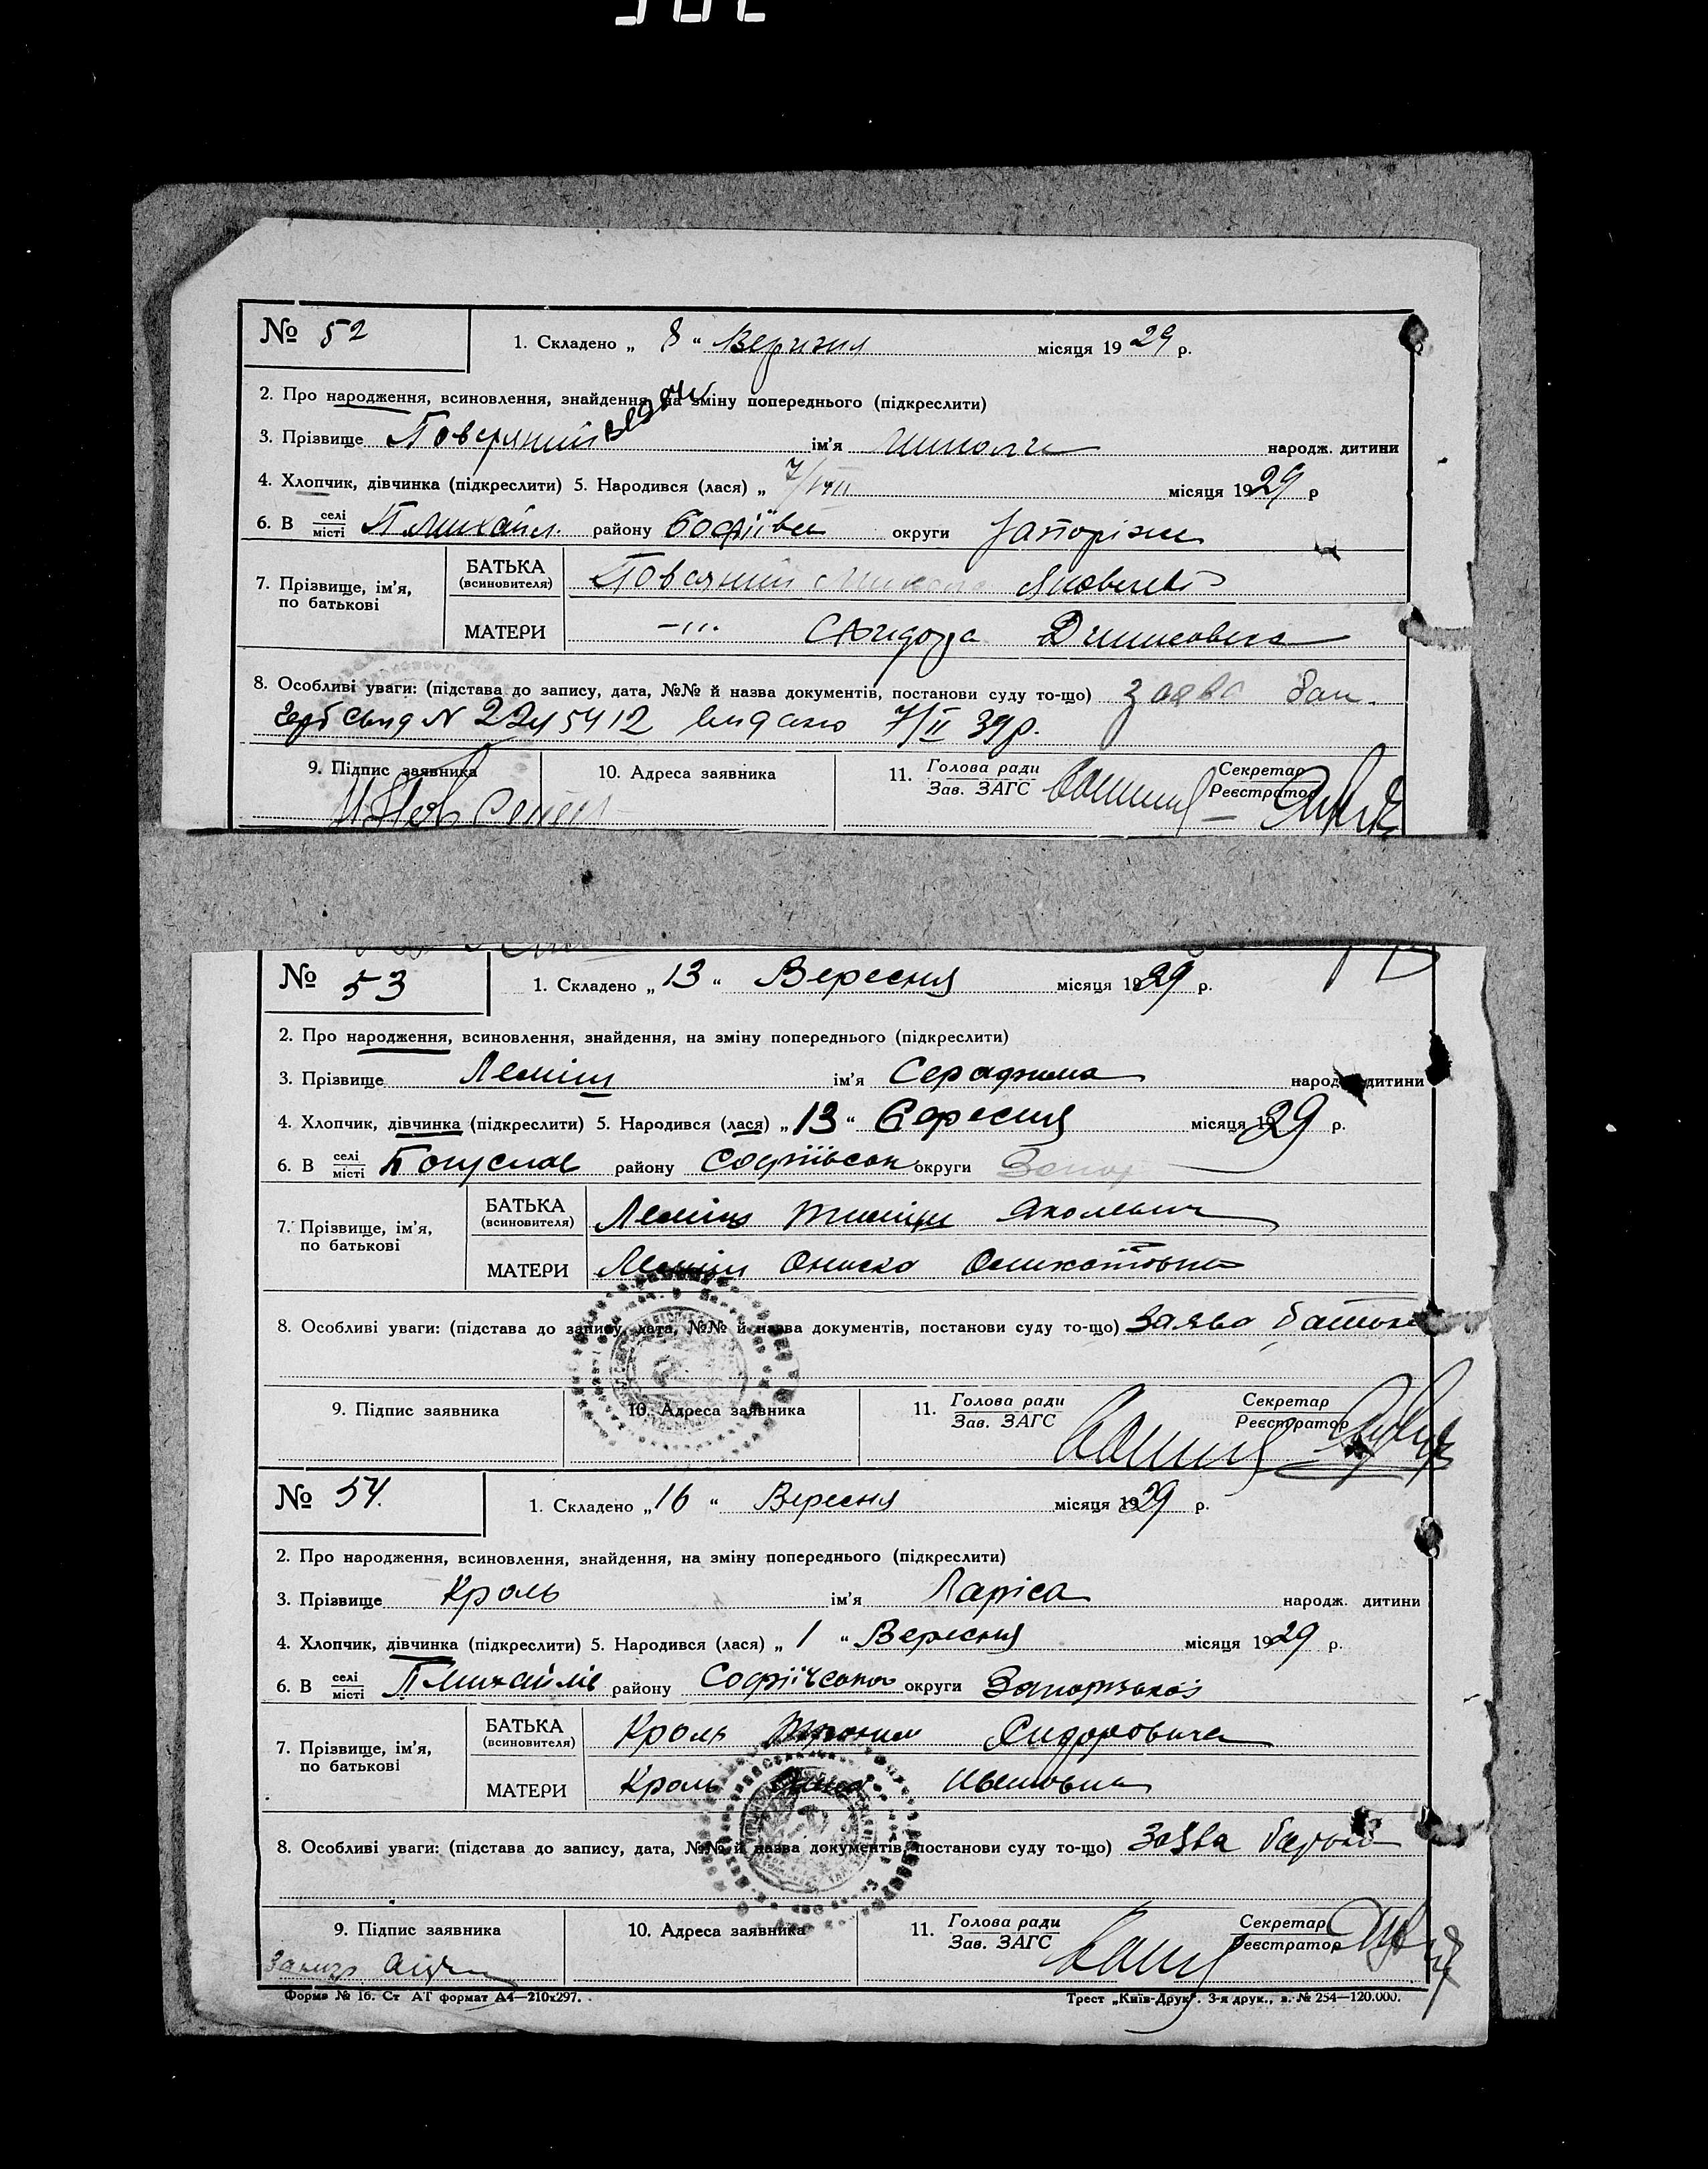 № 52 1. Складено „ 8 “ Верезня місяця 1929 р.
2. Про народження, всиновлення, знайдення, на зміну попереднього (підкреслити)
3. Прізвище ім'я народж. дитини
4. Хлопчик, дівчинка (підкреслити) 5. Народився (лася) „ 7/VIII місяця 1929 р
6. В селі місті П Михайл. району округи Запоріжж
7. Прізвище, ім'я, по батькові
БАТЬКА (всиновителя) Микола Яковлев
МАТЕРИ –〃–
8. Особливі уваги: (підстава до запису, дата, №№ й назва документів, постанови суду то-що) заява бат.
N видано 7/II 39р.
9. Підпис заявника 10. Адреса заявника 11. Голова ради Зав. ЗАГС Секретар Реєстратор
№ 53 1. Складено „ 13 “ Вересня місяця 1929 р.
2. Про народження, всиновлення, знайдення, на зміну попереднього (підкреслити)
3. Прізвище Леміш ім'я Серафима народж. дитини
4. Хлопчик, дівчинка (підкреслити) 5. Народився (лася) „ 13 “ Вересня місяця 1929 р.
6. В селі місті Богуслав району Софіївськ округи Запор
7. Прізвище, ім'я, по батькові
БАТЬКА (всиновителя) Леміш
МАТЕРИ Леміш
8. Особливі уваги: (підстава до запису, дата, №№ й назва документів, постанови суду то-що) Заява батька
9. Підпис заявника 10. Адреса заявника 11. Голова ради Зав. ЗАГС Секретар Реєстратор
№ 54. 1. Складено „ 16 “ Вересня місяця 1929 р.
2. Про народження, всиновлення, знайдення, на зміну попереднього (підкреслити)
3. Прізвище Кроль ім'я Ларіса народж. дитини
4. Хлопчик, дівчинка (підкреслити) 5. Народився (лася) „ 1 “ Вересня місяця 1929 р.
6. В селі місті П Михайлів району Софіївського округи Запорізької
7. Прізвище, ім'я, по батькові
БАТЬКА (всиновителя) Кроля Сидоровича
МАТЕРИ Кроль Ивановна
8. Особливі уваги: (підстава до запису, дата, №№ й назва документів, постанови суду то-що) Заява батька
9. Підпис заявника 10. Адреса заявника 11. Голова ради Зав. ЗАГС Секретар Реєстратор
Форма № 16. Ст АТ формат А4—210x297. Трест „Київ-Друк“. 3-я друк., з. № 254—120.000.